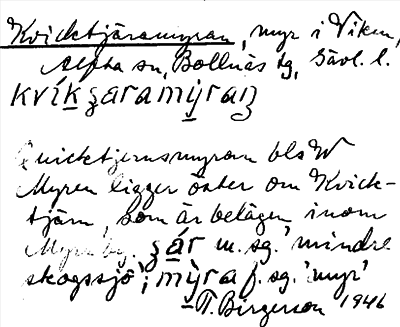 Kvicktjäramyran, myr i Viken,
Alfta sn, Bollnäs tg, Gävl. l.
kvíkʒaramỳraŋ
Quicktjernsmyran bls W
Myren ligger öster om Kvick-
tjärn, som är belägen inom
ʒár m. sg. 'mindre
skogssjö'; mỳra f. sg. 'myr'
T. Birgerson 1946